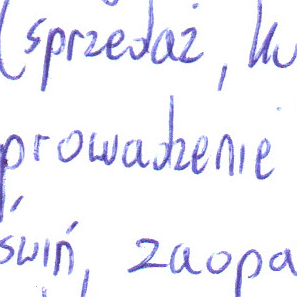 (sprzedaż, ku
prowadzenie
świń, zaopa